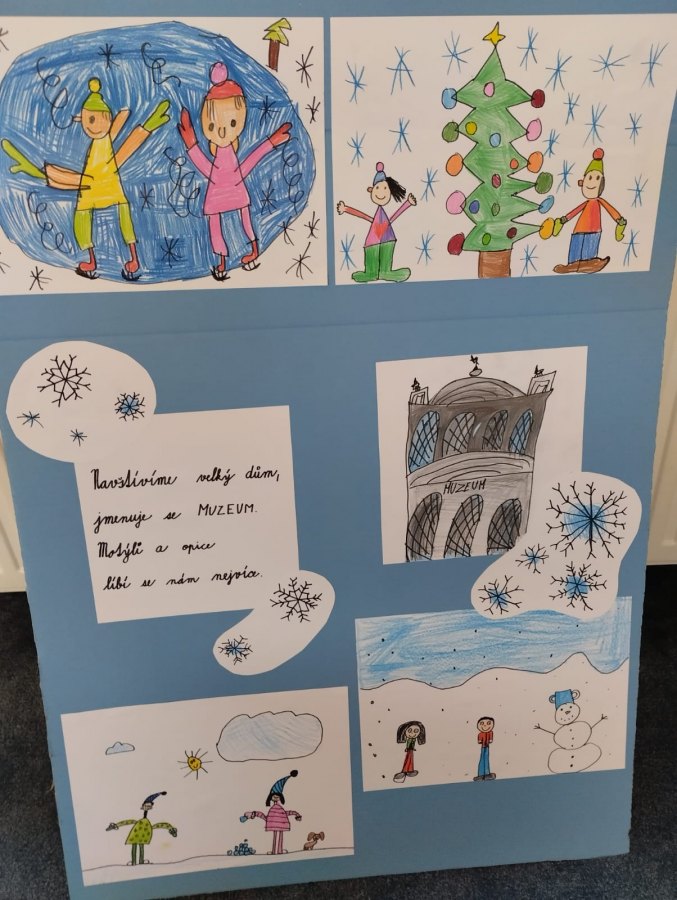 Navštívíme velký dům,
jmenuje se MUZEUM.
Motýli a opice
líbí se nám nejvíce.
MUZEUM